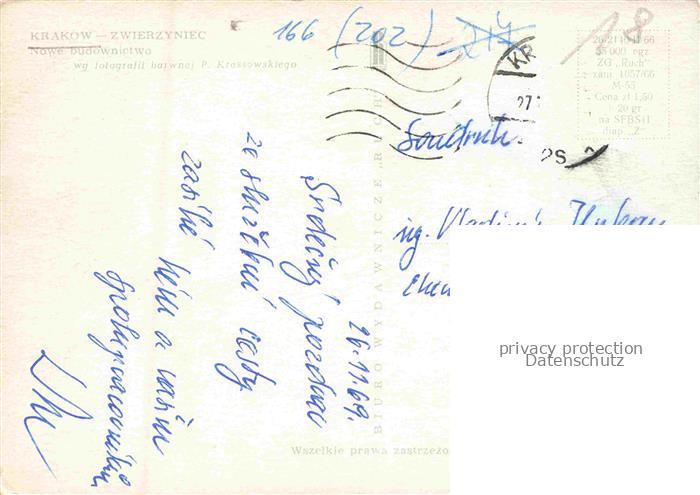 KRAKÓW — ZWIERZYNIEC
Nowe budownictwo
wg fotografii barwnej P. Krassowskiego
166 (202) 217
18
KR
27.
26-21 10 11/66
35 000 egz
ZG „Ruch"
zam. 1057/66
M-53
Cena zł 1,50
20 gr
na SFBSiI
diap. „Z"
BIURO WYDAWNICZE „RUCH"
Soudruh
ing. Vladimír
26.11.69.
Srdečný pozdrav
ze služební cesty
zasílá Vám a vašim
spolupracovníkům
Wszelkie prawa zastrzeżo
privacy protection
Datenschutz